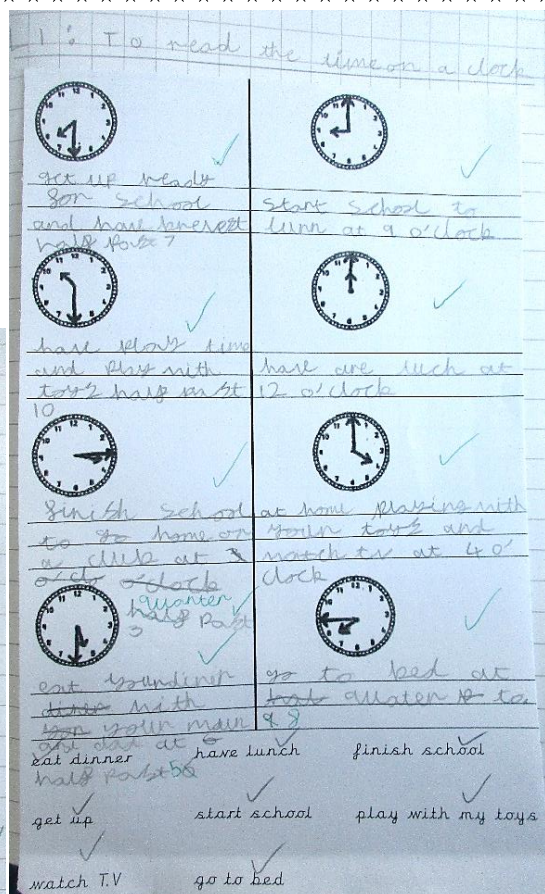 1: To read the time on a clock
get up ready
for school
and have brevest
half past 7
start school to
lurn at 9 o'clock
have play time
and play with
toyz half past
10
have are luch at
12 o'clock
finish school
to go home or
a club at
o'clo o'clock
quarter
half past
3
at home playing with
your toyz and
watch tv at 4 o'
clock
eat your diner
diner with
your mum
and dad at 6
half past 5
go to bed at
half quater to
9 8
eat dinner have lunch finish school
get up start school play with my toys
watch T.V go to bed